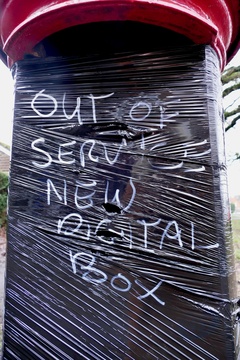 OUT OF
SERVICE
NEW
DIGITAL
BOX